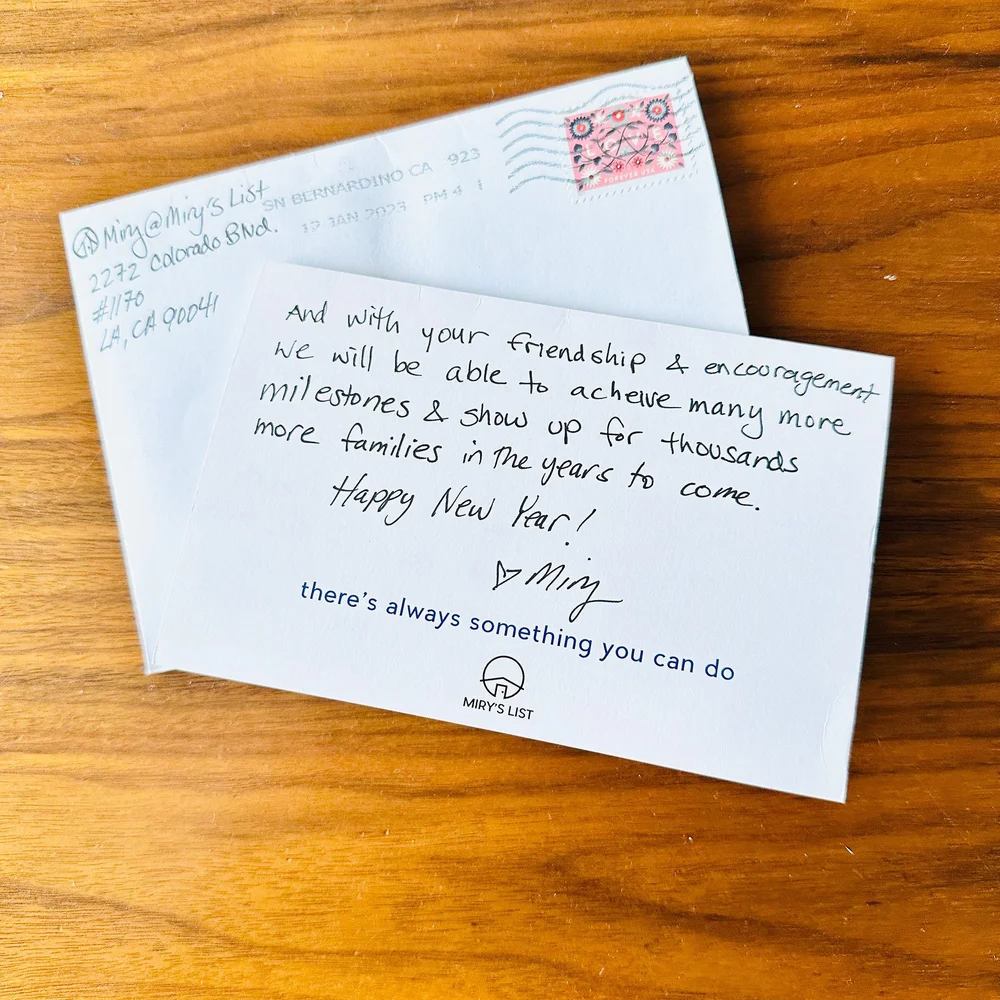 Miry@Miry's List
2272 Colorado Blvd.
#1170
LA, CA 90041
SN BERNARDINO CA 923
12 JAN 2023 PM 4 L
FOREVER USA
And with your friendship & encouragement
we will be able to acheive many more
milestones & show up for thousands
more families in the years to come.
Happy New Year!
Miry
there's always something you can do
MIRY'S LIST